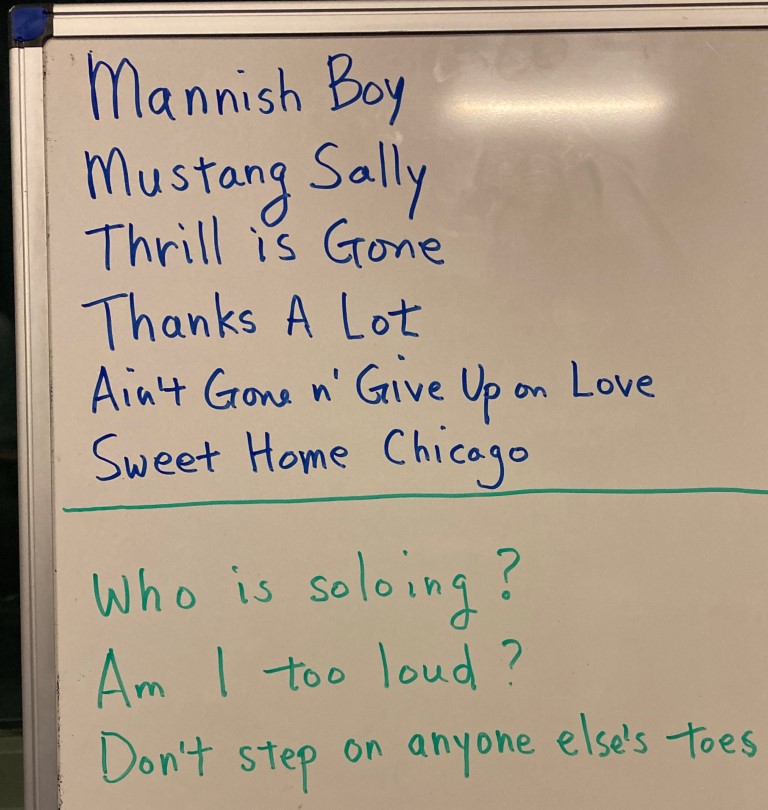 Mannish Boy
Mustang Sally
Thrill is Gone
Thanks A Lot
Ain't Gone n' Give Up on Love
Sweet Home Chicago
Who is soloing?
Am I too loud?
Don't step on anyone else's toes